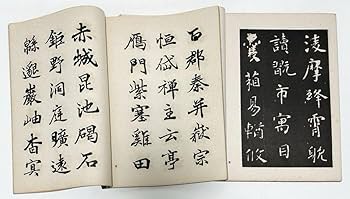 凌摩絳霄耽
讀翫市寓目
囊箱易輶攸
百郡秦并嶽宗
恒岱禪主云亭
雁門紫塞雞田
赤城昆池碣石
鉅野洞庭曠遠
緜邈巖岫杳冥